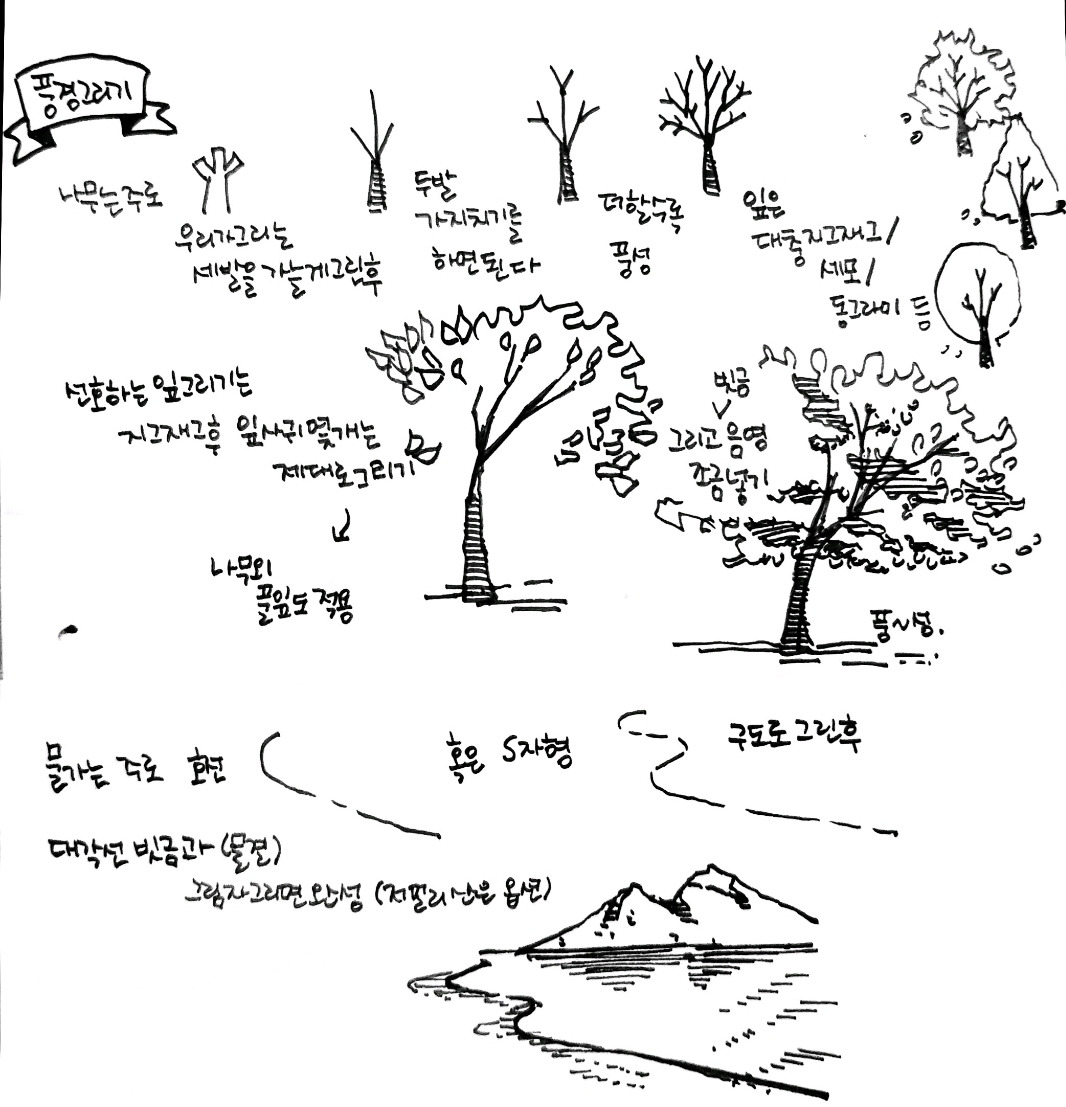 풍경그리기
나무는 주로
우리가그리는
세발을 가늘게그린후
두발
가지치기를
하면된다
더할수록
풍성
잎은
대충지그재그/
세모/
동그라미 등
선호하는 잎그리기는
지그재그후 잎사귀 몇개는
제대로그리기
나무외
풀잎도 적용
빗금
그리고 음영
조금넣기
풍~성.
물가는 주로 화면
혹은 S자형
구도로 그린후
대각선 빗금과 (물결)
그림자그리면 완성 (저멀리산은 옵션)